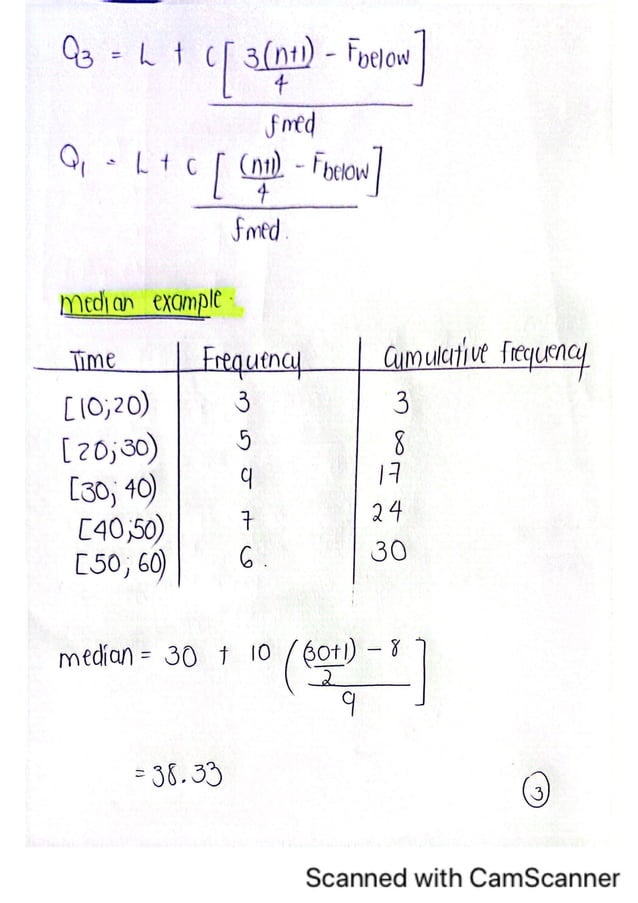 Q3 = L + C[ 3(n+1)/4 - Fbelow ]
fmed
Q1 = L + C [ (n+1)/4 - Fbelow ]
fmed.
Median example.
Time Frequency Cumulative frequency
[10;20) 3 3
[20;30) 5 8
[30; 40) 9 17
[40;50) 7 24
[50; 60) 6. 30
median = 30 + 10 ( (30+1)/2 - 8 ]
9
= 38.33
3
Scanned with CamScanner